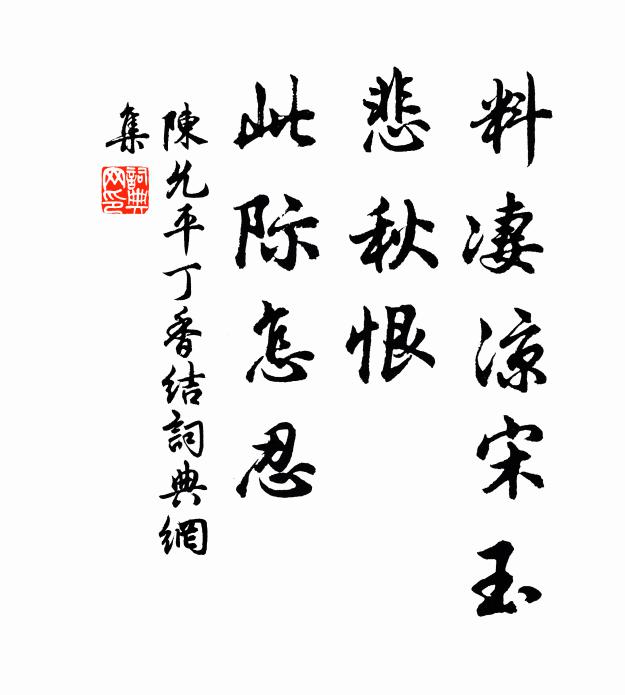 料凄凉宋玉
悲秋恨
此际怎忍
陳允平丁香结詞典網
集
詞典
网印